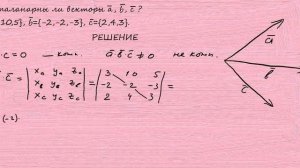 планарны ли векторы a̅, b̅, c̅ ?
10,5}, b̅={-2,-2,-3}, c̅={2,4,3}.
РЕШЕНИЕ
c = 0 — комп. a̅ b̅ c̅ ≠ 0 не комп.
c̅ = | xₐ yₐ zₐ | = | 3 10 5 | =
| x_B y_B z_B | | -2 -2 -3 |
| x_c y_c z_c | | 2 4 3 |
(-2)
a̅
b̅
c̅